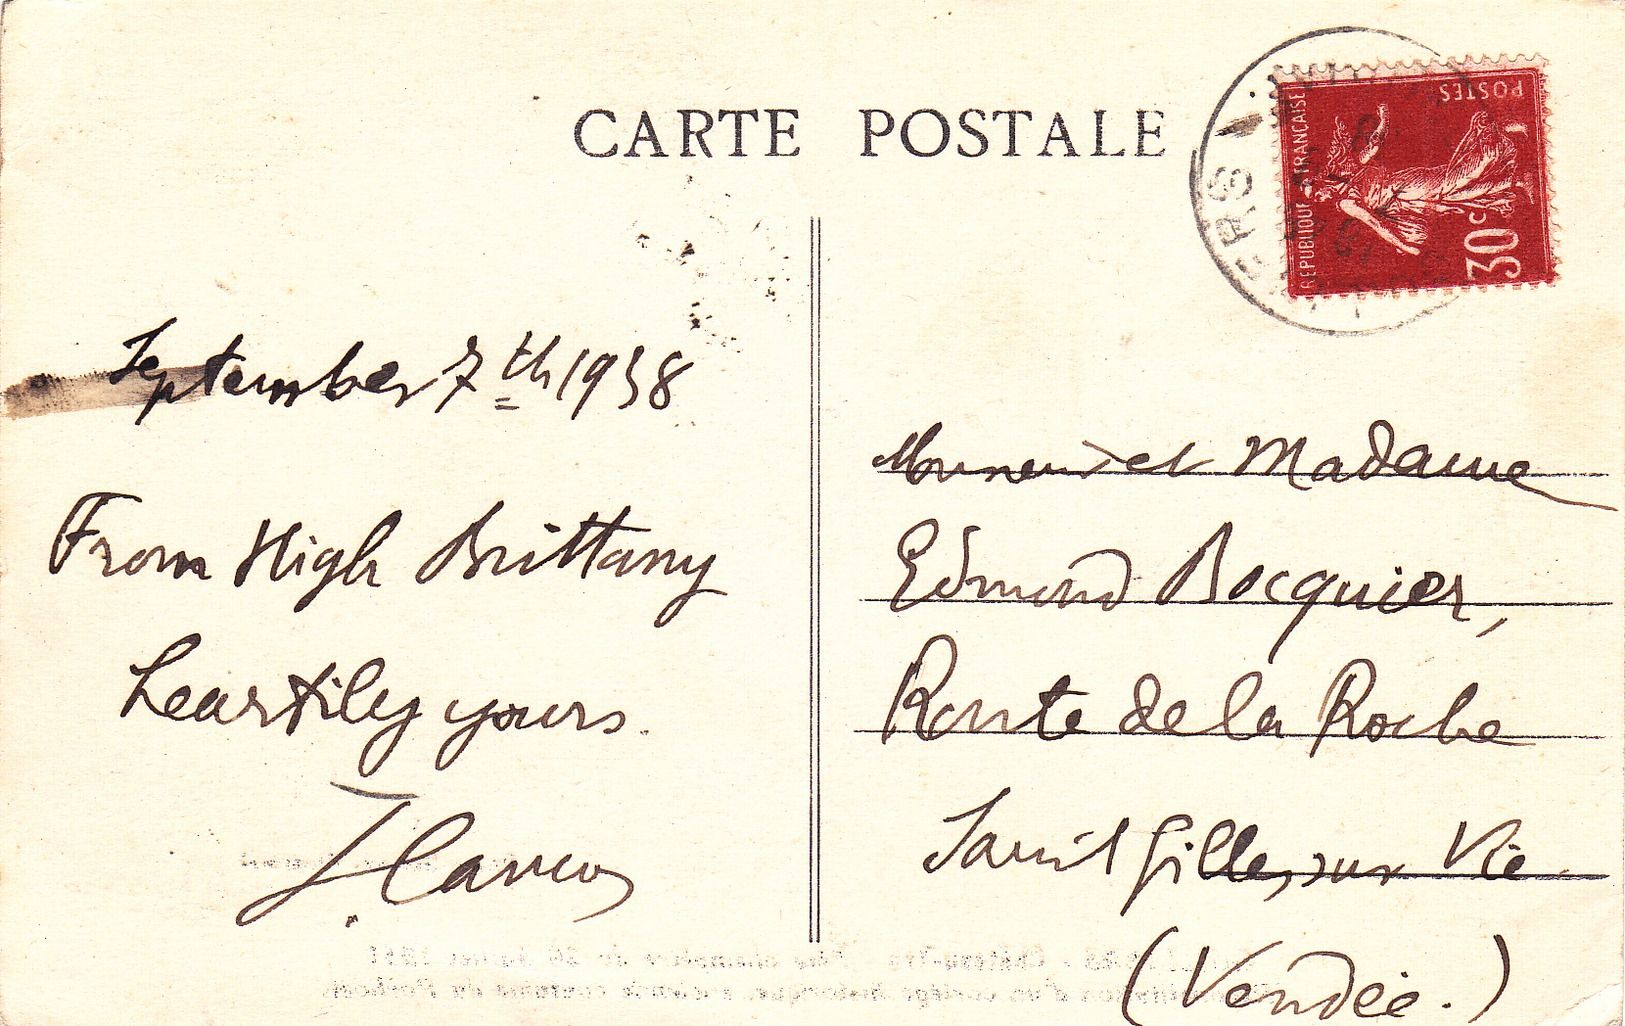 CARTE POSTALE
POSTES
REPUBLIQUE FRANCAISE
30c
ERS
September 7th 1938
From High Brittany
heartily yours.
Monsieur et Madame
Edmond Bocquier,
Route de la Roche
Saint Gilles sur Vie.
(Vendée.)